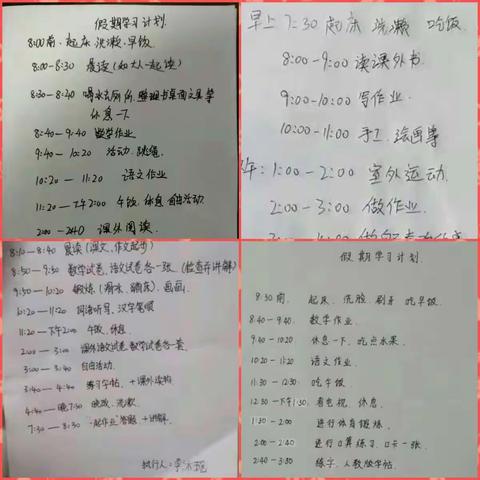 假期学习计划.
8:00前、起床、洗漱、早饭
8:00-8:30 晨读(和大人一起读)
8:30-8:40 喝水去厕所,整理书桌面文具等
休息一下
8:40-9:40 数学作业
9:40-10:20 活动、跳绳
10:20-11:20 语文作业
11:20-下午2:00 午饭、休息、自由活动
2:00-2:40 课外阅读.
早上7:30起床 洗漱 吃饭.
8:00-9:00 读课外书.
9:00-10:00 写作业.
10:00-11:00 手工.绘画等
午:1:00-2:00 室外运动.
2:00-3:00 做作业.
8:10-8:40 晨读(课文、作文起步)
8:50-9:50 数学试卷、语文试卷各一张、(检查并讲解)
9:50-10:20 锻炼(喝水、),画画.
10:20-11:20 词语听写、汉字笔顺
11:20-下午2:00 午饭、休息.
2:00-3:00 课外语文试卷、数学试卷各一套.
3:00-3:40 自由活动.
3:40-4:40 练习字帖、+课外读物
4:40-晚7:30 晚饭、洗漱
7:30-8:30 "一起作业"答题+讲解.
执行人:李
假期学习计划.
8:30前. 起床、洗脸、刷牙 吃早饭.
8:40-9:40. 数学作业.
9:40-10:20 休息一下、吃点水果.
10:20-11:20 语文作业.
11:30-12:30 吃午饭.
12:30-下午1:30. 看电视、休息.
1:30-2:00 进行体育锻炼.
2:00-2:40 进行口算练习、口卡一张.
2:40-3:30 练字、人教版字帖.